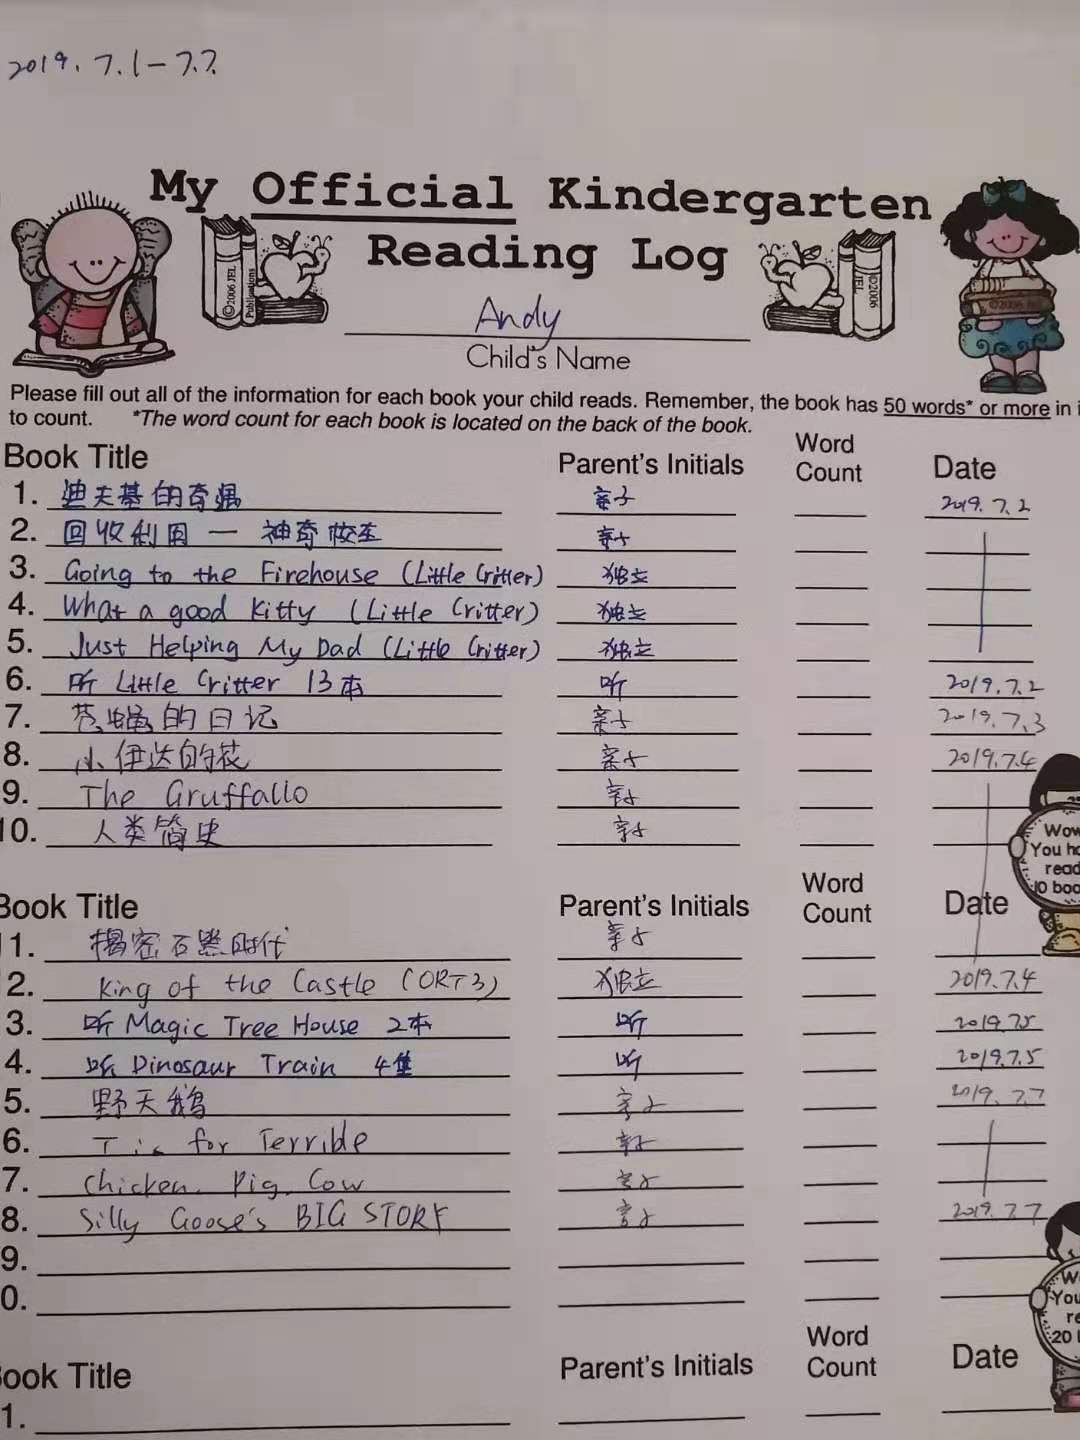 2019.7.1-7.7.
My Official Kindergarten
Reading Log
©2006 JEL Publications
©2006 JEL
©2006 JEL
Andy
Child's Name
Please fill out all of the information for each book your child reads. Remember, the book has 50 words* or more in
to count. *The word count for each book is located on the back of the book.
Book Title Parent's Initials Word Count Date
1. 迪夫基的奇遇 亲子 2019.7.2
2. 回收利用 — 神奇校车 亲子
3. Going to the Firehouse (Little Critter) 独立
4. What a good Kitty (Little Critter) 独立
5. Just Helping My Dad (Little Critter) 独立
6. 听 Little Critter 13本 听 2019.7.2
7. 的日记 亲子 2019.7.3
8. 小伊达的花 亲子 2019.7.4
9. The Gruffallo 亲子
10. 人类简史 亲子
Wow
You ha
read
10 boo
Book Title Parent's Initials Word Count Date
1. 揭密石器时代 亲子
2. King of the Castle (ORT3) 独立 2019.7.4
3. 听 Magic Tree House 2本 听 2019.7.5
4. 听 Dinosaur Train 4集 听 2019.7.5
5. 野天鹅 亲子 2019.7.7
6. T is for Terrible 亲子
7. Chicken, Pig, Cow 亲子
8. Silly Goose's BIG STORY 亲子 2019.7.7
9.
0.
W
You
re
20
ook Title Parent's Initials Word Count Date
1.